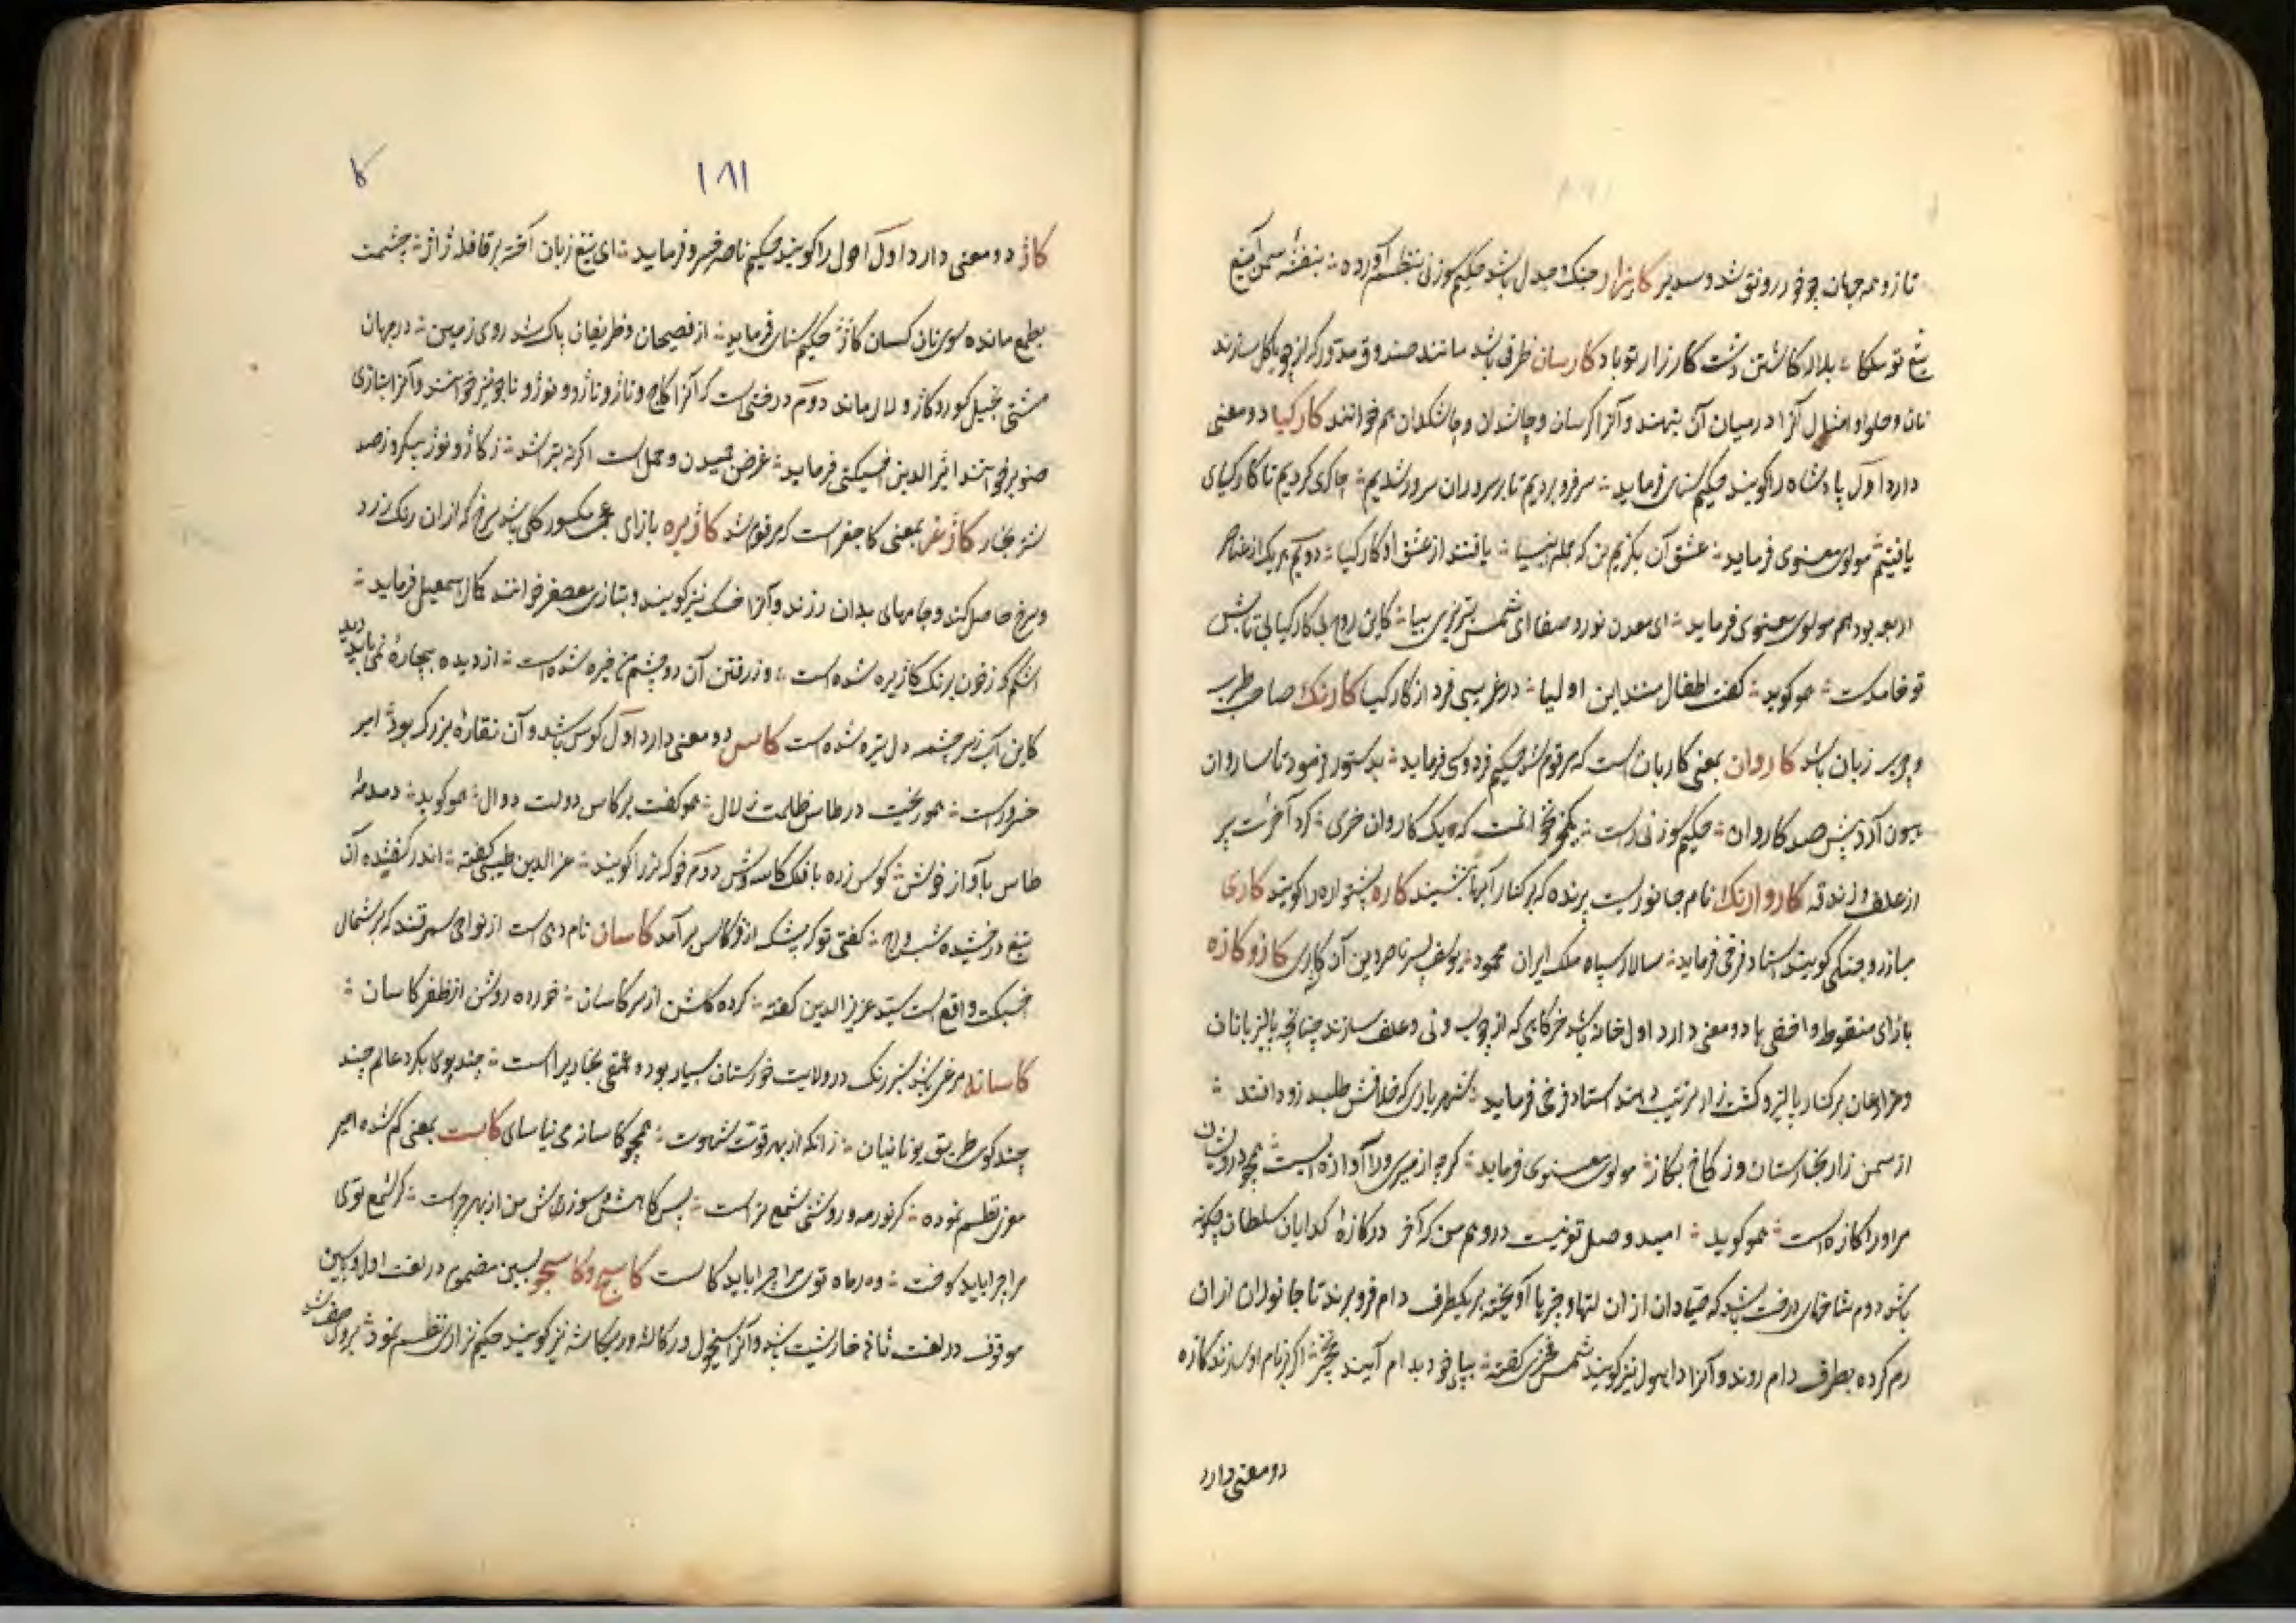 تازه و همه جهان چو خور رونق شد و سدیر کارزار جنک و جدل باشد حکیم سوزنی بنظم آورده بنفشه سمن تیغ
تیغ تو ملکا بلاله کاشتن دشت کارزار تو باد کارسان ظرفی باشد مانند صندوق مدور که از چوب یا کل سازند
نان و حلوا و امثال آنرا در میان آن بنهند و آنرا کرسان و چاشدان و چاشکدان هم خوانند کارکیا دو معنی
دارد اول پادشاه را کویند حکیم سنائی فرماید سر فرو بردیم تا بر سروران سرور شدیم چاکری کردیم تا کارکیای
یافتیم مولوی معنوی فرماید عشق آن بکزین که جمله انبیا یافتند از عشق او کارکیا دویم هر یک از عناصر
اربعه بود هم مولوی معنوی فرماید ای معدن نور و صفا ای شمس تبریزی بیا کاین روح بی کارکیا بی تابش
تو خامدست هم او کوید کفت اطفال منند این اولیا در غریبی فرد از کارکیا کارنک صاحب طرب
و چرب زبان باشد کاروان بمعنی کاربان است که مرقوم شد حکیم فردوسی فرماید بدستور فرمود تا ساروان
هیون آرد از پیش صد کاروان حکیم سوزنی راست که یک کاروان خری کرد آخرت پر
از علف و زندقه کاروانک نام جانوریست پرنده که بر کنار آبها نشیند کاره پشتواره را کویند کاری
مبارز و جنکی کویند استاد فرخی فرماید سالار سپاه ملک ایران محمود یوسف پسر ناصر دین آن کاری کاز و کازه
بازای منقوط و اخفای ها دو معنی دارد اول خانه باشد خرکاهی که از چوب و نی و علف سازند چنانچه پالیزبانان
و مزارعان بر کنار پالیز و کشت زار ترتیب دهند استاد فرخی فرماید شهریاری که خلافش طلبد زود افتد
از سمن زار بخارستان وز کاخ بکاز مولوی معنوی فرماید کرچه از میری ورا آوازه ایست همچو درویشان
مر او را کازه است هم او کوید امید وصل تو نیست در وهم من که آخر در کازهٔ کدایان سلطان چکونه
باشد دوم شاخهای درخت باشد که صیادان از آن لتها و چیزها آویخته بر یکطرف دام فرو برند تا جانوران از آن
رم کرده بطرف دام روند و آنرا داهول نیز کویند شمس فخری کفته بپای خود بدام آیند نخچیر اکر بر نام او سازند کازه
دو معنی دارد
۱۸۱
کا
کاژ دو معنی دارد اول احول را کویند حکیم ناصر خسرو فرماید ای تیغ زبان آخته بر قافله ژاژ چشمت
بطمع مانده سوی نان کسان کاژ حکیم سنائی فرماید از فصیحان و ظریفان پاک شد روی زمین در جهان
مشتی بخیل کور و کاژ و لال ماند دوم درختی است که آنرا کاج و ناژ و ناژو و نوژ و ناجو نیز خوانند و آنرا بتازی
صنوبر خوانند اثیرالدین اخسیکتی فرماید غرض و محمل است اکر نه بتر باشد ز کاژ و نوژ بیکروز صد
شتر بخار کاژغر بمعنی کاجغر است که مرقوم شد کاژیره بازای عجمی مکسور کلی باشد سرخ که از آن رنک زرد
و سرخ حاصل کند و جامهای بدان رزند و آنرا خسک نیز کویند و بتازی معصفر خوانند کمال اسمعیل فرماید
اشکم که ز خون برنک کاژیره شده است وز رفتن آن دو چشم من خیره شده است از دیده بیچاره نمی باید دید
کاین آب ز سر چشمه دل تیره شده است کاس دو معنی دارد اول کوس باشد و آن نقارهٔ بزرک بود امیر
خسرو راست هم او ریخت در طاس ظلمت زلال هم او کفت بر کاس دولت دوال هم او کوید دمدمهٔ
طاس بآواز خوش کوس زده با فلک کاسه وش دوم خوک نر را کویند عزالدین طبسی کفته اندر کف شده آن
تیغ درخشنده شب و روز کفتی تو که یشک از فر کاس بر آمد کاسان نام دهی است از نواحی سمرقند که بر شمال
اخسیکت واقع است سید عزیزالدین کفته کرده کلشن از سر کاسان خورده روشن از ظفر کاسان
کاسانه مرغی باشد سبز رنک در ولایت خوزستان بسیار بود عمعق بخاری راست چند پوئی بکرد عالم چند
چند کوبی طریق یونانیان زانکه از بهر قوت شهوت همچو کاسانه می نیاسای کاست بمعنی کم شده امیر
معزی نظم نموده کر نور مه و روشنی شمع تراست پس کاهش و سوزش من از بهر چراست کر شمع توی
مرا چرا باید کوفت ور ماه توی مرا چرا باید کاست کاسج و کاسجو بسین مضموم در لغت اول و سین
موقوف در لغت ثانی خارپشت باشد و آنرا اسیخول و رکاشه و ریکاشه نیز کویند حکیم نزاری نظم نمود